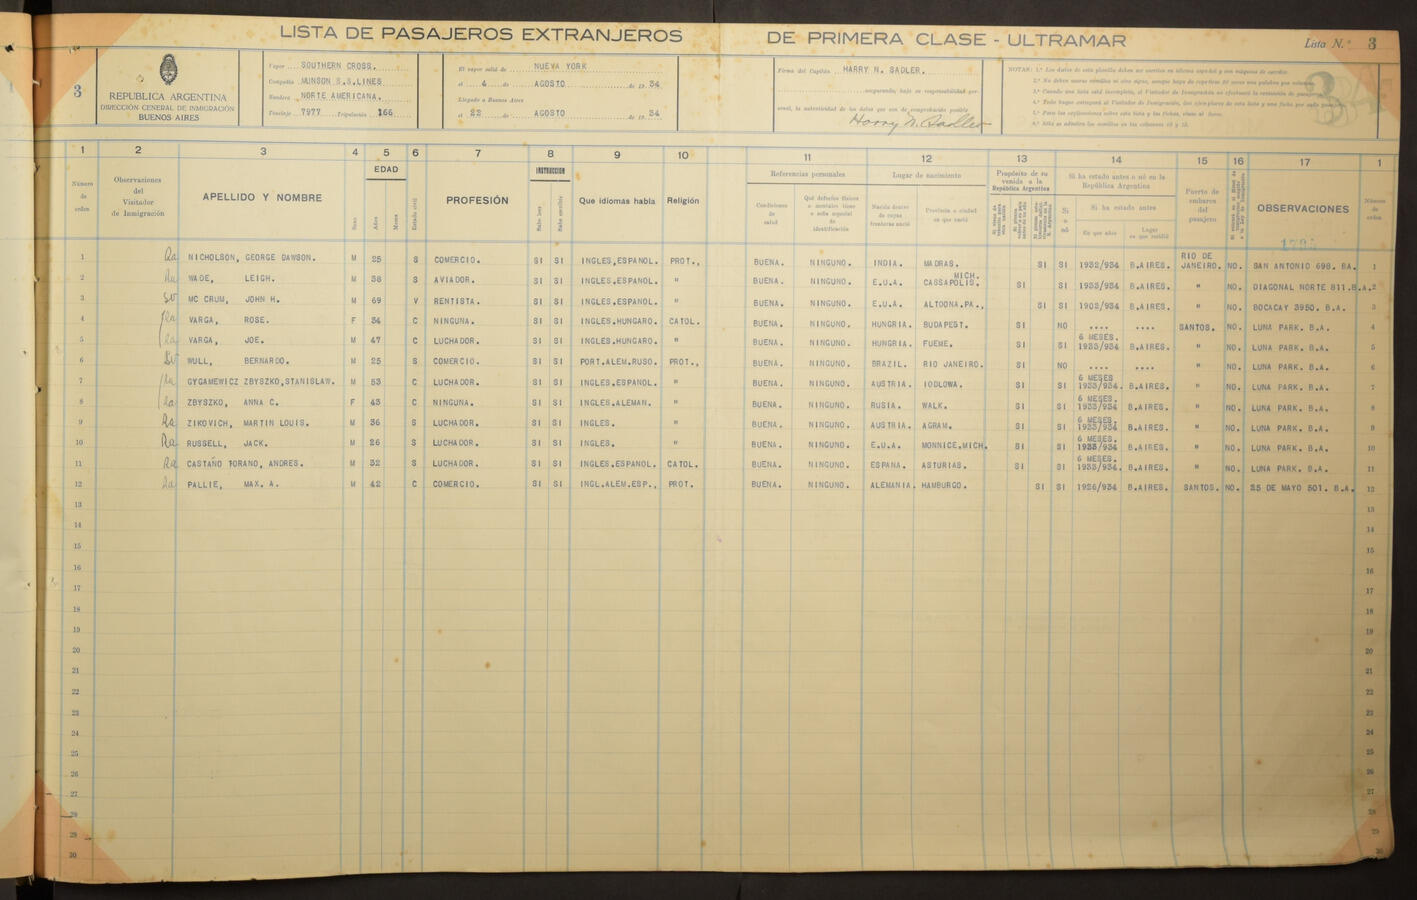 LISTA DE PASAJEROS EXTRANJEROS DE PRIMERA CLASE - ULTRAMAR
Lista N. 3
3
REPUBLICA ARGENTINA
DIRECCIÓN GENERAL DE INMIGRACIÓN
BUENOS AIRES
Vapor SOUTHERN CROSS.
Compañía MUNSON S.S.LINES
Bandera NORTE AMERICANA.
Tonelaje 7977 Tripulación 166
El vapor salió de NUEVA YORK
el 4 de AGOSTO de 19 34
Llegado a Buenos Aires
el 22 de AGOSTO de 19 34
Firma del Capitán HARRY N. SADLER.
asegurando, bajo su responsabilidad personal, la autenticidad de los datos que son de comprobación posible
Harry N. Sadler
NOTAS:
1 2 3 4 5 6 7 8 9 10 11 12 13 14 15 16 17 1
Número de orden
Observaciones del Visitador de Inmigración
APELLIDO Y NOMBRE
Sexo
EDAD
Años
Meses
Estado civil
PROFESIÓN
INSTRUCCION
Sabe leer
Sabe escribir
Que idiomas habla
Religión
Referencias personales
Condiciones de salud
Qué defectos físicos o mentales tiene o seña especial de identificación
Lugar de nacimiento
Nacido dentro de cuyas fronteras nació
Provincia o ciudad en que nació
Propósito de su venida a la República Argentina
Si ha estado antes o nó en la República Argentina
Si o nó
Si ha estado antes
En que años
Lugar en que residió
Puerto de embarco del pasajero
OBSERVACIONES
Número de orden
1 NICHOLSON, GEORGE DAWSON. M 25 S COMERCIO. SI SI INGLES,ESPANOL. PROT., BUENA. NINGUNO. INDIA. MADRAS. SI SI 1932/934 B.AIRES. RIO DE JANEIRO. NO. SAN ANTONIO 698. BA. 1
2 WADE, LEIGH. M 38 S AVIADOR. SI SI INGLES,ESPANOL. " BUENA. NINGUNO. E.U.A. CASSAPOLIS. MICH. SI SI 1933/934 B.AIRES. " NO. DIAGONAL NORTE 811.B.A. 2
3 MC CRUM, JOHN H. M 69 V RENTISTA. SI SI INGLES,ESPANOL. " BUENA. NINGUNO. E.U.A. ALTOONA.PA., SI SI 1902/934 B.AIRES. " NO. BOCACAY 3950. B.A. 3
4 VARGA, ROSE. F 34 C NINGUNA. SI SI INGLES.HUNGARO. CATOL. BUENA. NINGUNO. HUNGRIA. BUDAPEST. SI NO .... .... SANTOS. NO. LUNA PARK. B.A. 4
5 VARGA, JOE. M 47 C LUCHADOR. SI SI INGLES.HUNGARO. " BUENA. NINGUNO. HUNGRIA. FUEME. SI SI 6 MESES. 1933/934 B.AIRES. " NO. LUNA PARK. B.A. 5
6 WULL, BERNARDO. M 25 S COMERCIO. SI SI PORT.ALEM.RUSO. PROT., BUENA. NINGUNO. BRAZIL. RIO JANEIRO. SI NO .... .... " NO. LUNA PARK. B.A. 6
7 GYGAMEWICZ ZBYSZKO,STANISLAW. M 53 C LUCHADOR. SI SI INGLES.ESPANOL. " BUENA. NINGUNO. AUSTRIA. IODLOWA. SI SI 6 MESES 1933/934. B.AIRES. " NO. LUNA PARK. B.A. 7
8 ZBYSZKO, ANNA C. F 43 C NINGUNA. SI SI INGLES.ALEMAN. " BUENA. NINGUNO. RUSIA. WALK. SI SI 6 MESES. 1933/934 B.AIRES. " NO. LUNA PARK. B.A. 8
9 ZIKOVICH, MARTIN LOUIS. M 36 S LUCHADOR. SI SI INGLES. " BUENA. NINGUNO. AUSTRIA. AGRAM. SI SI 6 MESES. 1933/934 B.AIRES. " NO. LUNA PARK. B.A. 9
10 RUSSELL, JACK. M 26 S LUCHADOR. SI SI INGLES. " BUENA. NINGUNO. E.U.A. MONNICE.MICH. SI SI 6 MESES. 1933/934 B.AIRES. " NO. LUNA PARK. B.A. 10
11 CASTAÑO TORANO, ANDRES. M 32 S LUCHADOR. SI SI INGLES.ESPANOL. CATOL. BUENA. NINGUNO. ESPANA. ASTURIAS. SI SI 6 MESES. 1933/934. B.AIRES. " NO. LUNA PARK. B.A. 11
12 PALLIE, MAX. A. M 42 C COMERCIO. SI SI INGL.ALEM.ESP., PROT. BUENA. NINGUNO. ALEMANIA. HAMBURGO. SI SI 1926/934 B.AIRES. SANTOS. NO. 25 DE MAYO 501. B.A. 12
13 13
14 14
15 15
16 16
17 17
18 18
19 19
20 20
21 21
22 22
23 23
24 24
25 25
26 26
27 27
28 28
29 29
30 30